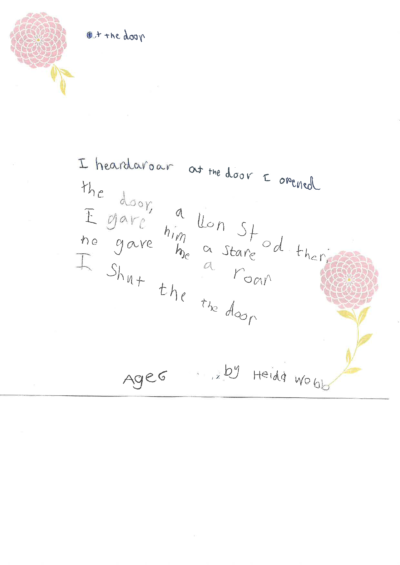 At the door
I heard a roar at the door I opened
the door, a lion stod there
I gave him a stare
he gave me a roar
I shut the the door
Age 6 by Heidi Webb